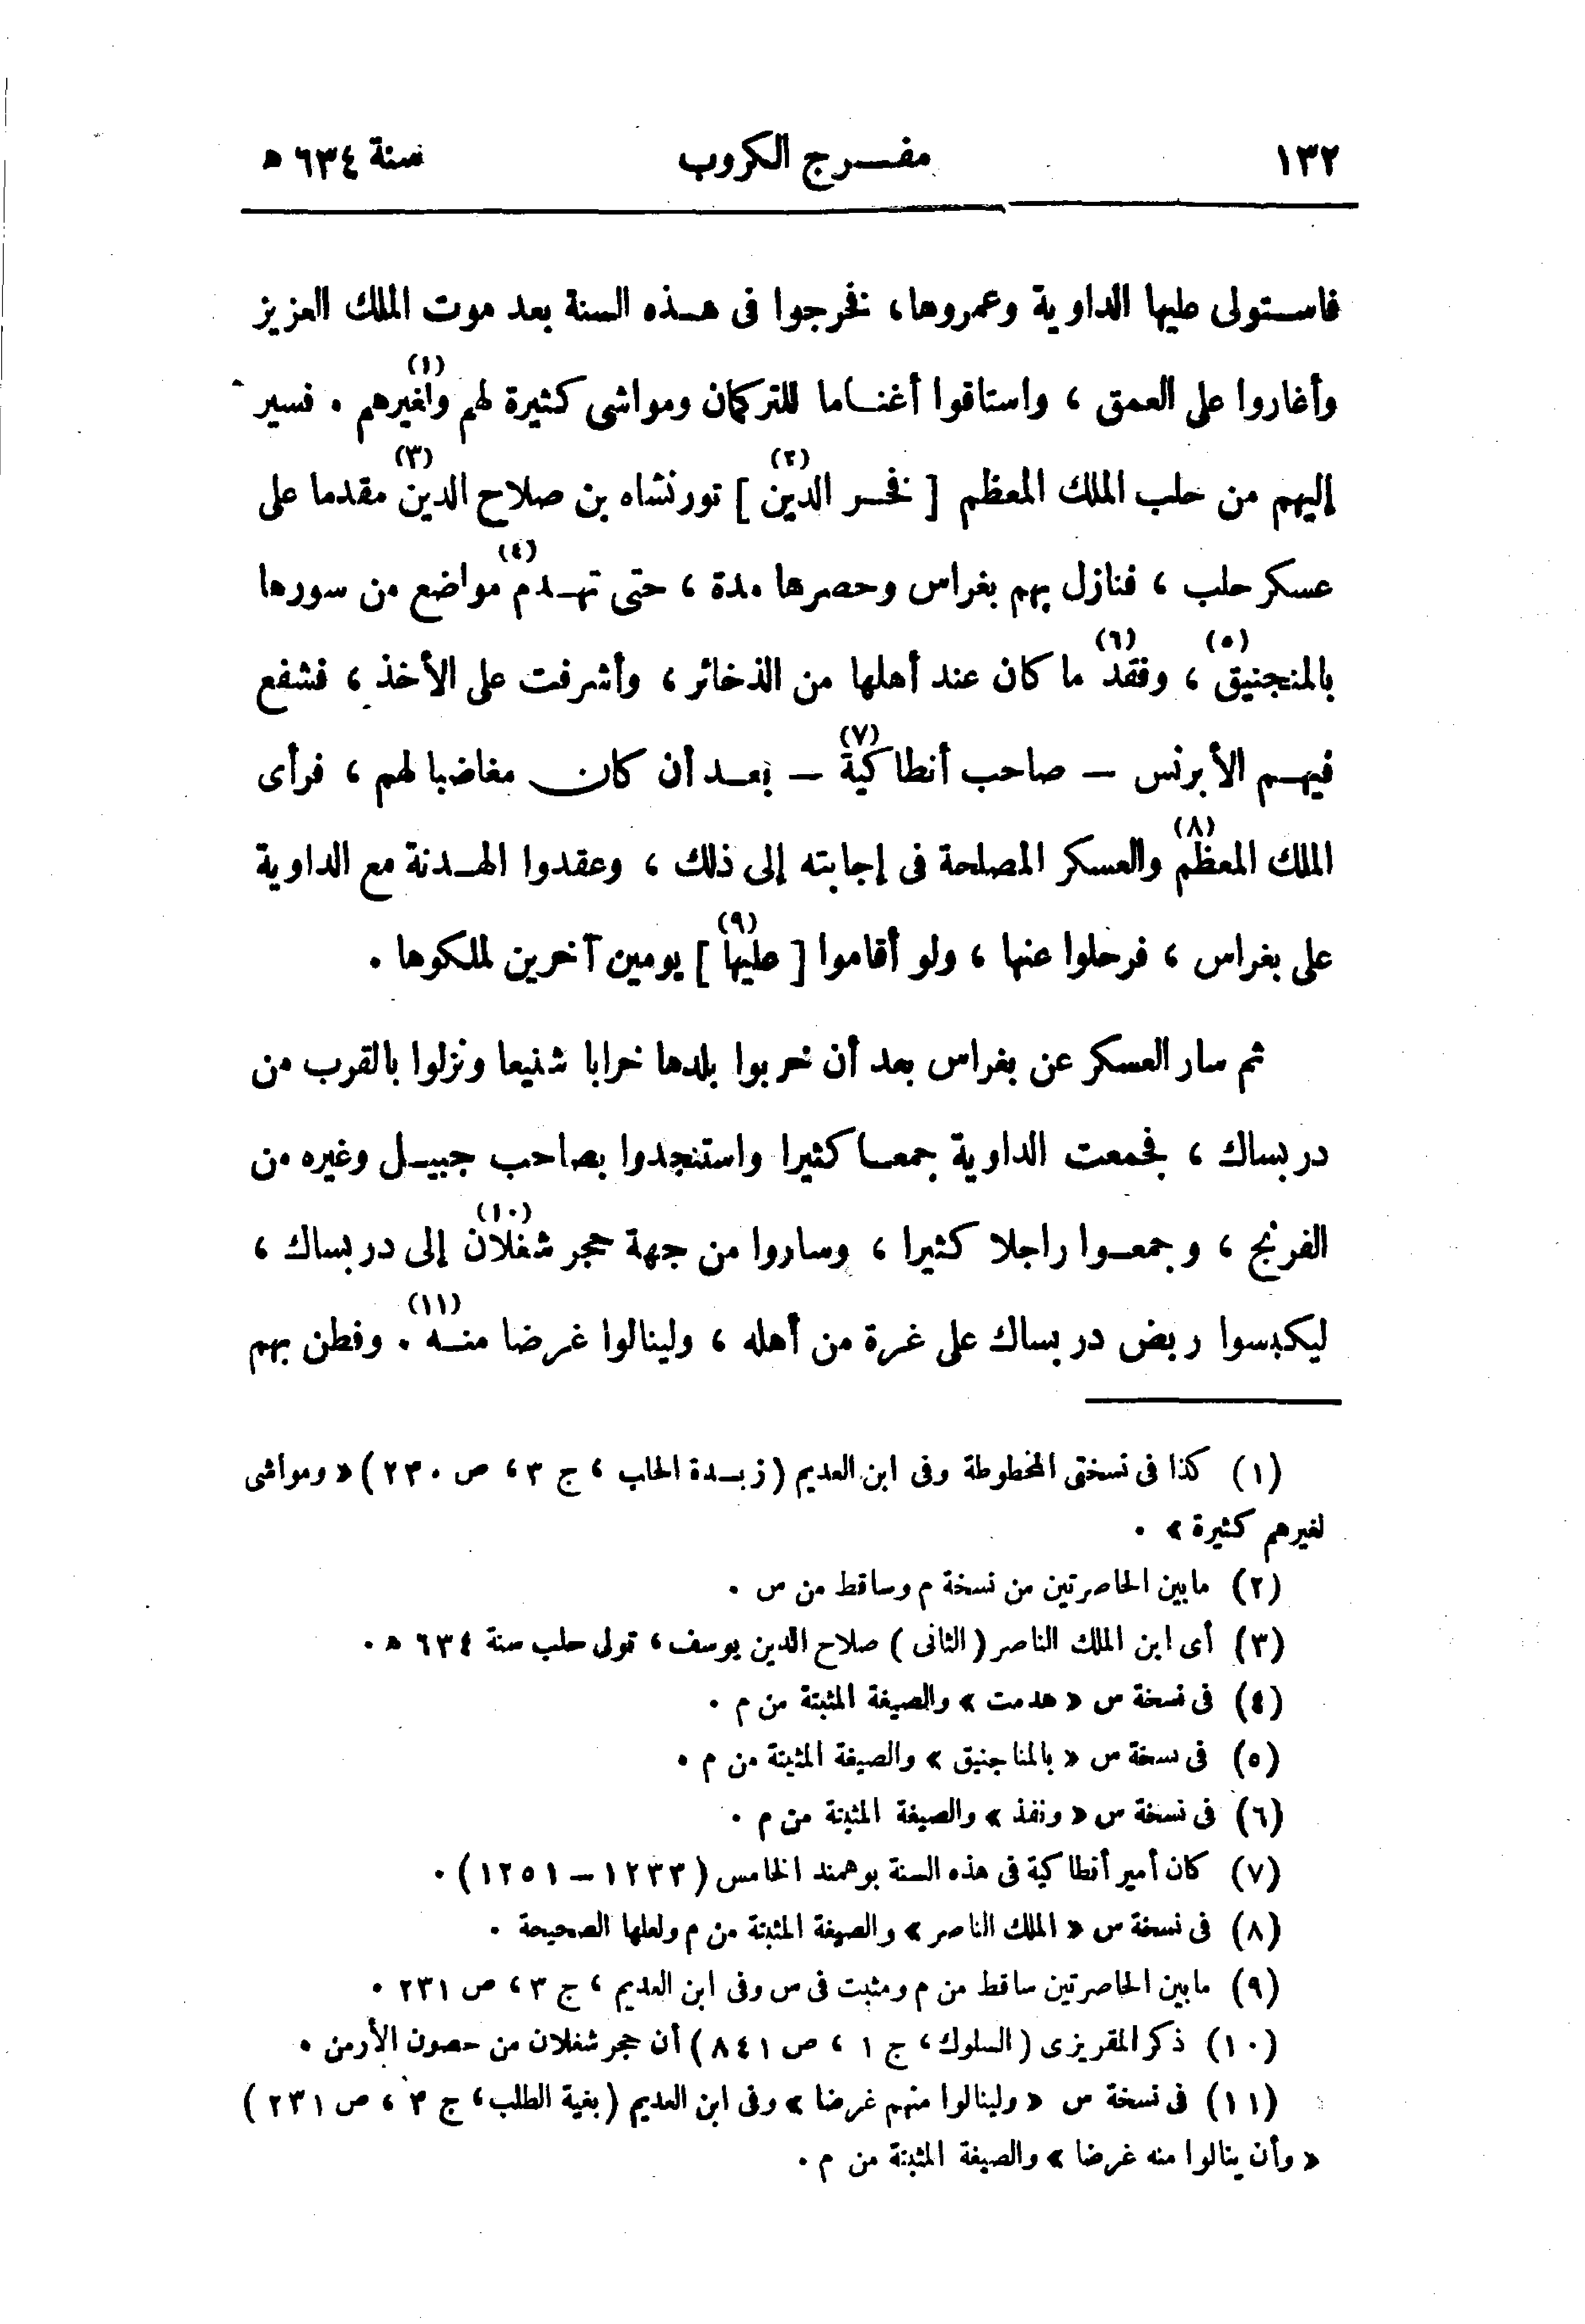 ١٣٢ مفرج الكروب سنة ٦٣٤ هـ
فاستولى عليها الداوية وعمروها، فخرجوا فى هذه السنة بعد موت الملك العزيز
وأغاروا على العمق ، واستاقوا أغناما للتركمان ومواشى كثيرة لهم ولغيرهم (١) . فسير
إليهم من حلب الملك المعظم [ فخر الدين (٢) ] تورنشاه بن صلاح الدين (٣) مقدما على
عسكر حلب ، فنازل بهم بغراس وحصرها مدة ، حتى تهدم (٤) مواضع من سورها
بالمنجنيق (٥) ، وفقد (٦) ما كان عند أهلها من الذخائر ، وأشرفت على الأخذ ، فشفع
فيهم الأبرنس – صاحب أنطاكية (٧) – بعد أن كان مغاضبا لهم ، فرأى
الملك المعظم (٨) والعسكر المصلحة فى إجابته إلى ذلك ، وعقدوا الهدنة مع الداوية
على بغراس ، فرحلوا عنها ، ولو أقاموا [ عليها (٩) ] يومين آخرين لملكوها .
ثم سار العسكر عن بغراس بعد أن خربوا بلدها خرابا شنيعا ونزلوا بالقرب من
دربساك ، فجمعت الداوية جمعا كثيرا واستنجدوا بصاحب جبيل وغيره من
الفرنج ، وجمعوا راجلا كثيرا ، وساروا من جهة حجر شغلان (١٠) إلى دربساك ،
ليكبسوا ربض دربساك على غرة من أهله ، ولينالوا غرضا منه (١١) . وفطن بهم
(١) كذا فى نسختى المخطوطة وفى ابن العديم (زبدة الحلب ، ج ٣ ، ص ٢٣٠) « ومواشى
لغيرهم كثيرة » .
(٢) مابين الحاصرتين من نسخة م وساقط من س .
(٣) أى ابن الملك الناصر (الثانى) صلاح الدين يوسف ، تولى حلب سنة ٦٣٤ هـ .
(٤) فى نسخة س « هدمت » والصيغة المثبتة من م .
(٥) فى نسخة س « بالمناجنيق » والصيغة المثبتة من م .
(٦) فى نسخة س « ونفذ » والصيغة المثبتة من م .
(٧) كان أمير أنطاكية فى هذه السنة بوهمند الخامس (١٢٣٣ – ١٢٥١) .
(٨) فى نسخة س « الملك الناصر » والصيغة المثبتة من م ولعلها الصحيحة .
(٩) مابين الحاصرتين ساقط من م ومثبت فى س وفى ابن العديم ، ج ٣ ، ص ٢٣١ .
(١٠) ذكر المقريزى (السلوك ، ج ١ ، ص ٨٤١) أن حجر شغلان من حصون الأرمن .
(١١) فى نسخة س « ولينالوا منهم غرضا » وفى ابن العديم (بغية الطلب ، ج ٣ ، ص ٢٣١)
« وأن ينالوا منه غرضا » والصيغة المثبتة من م .